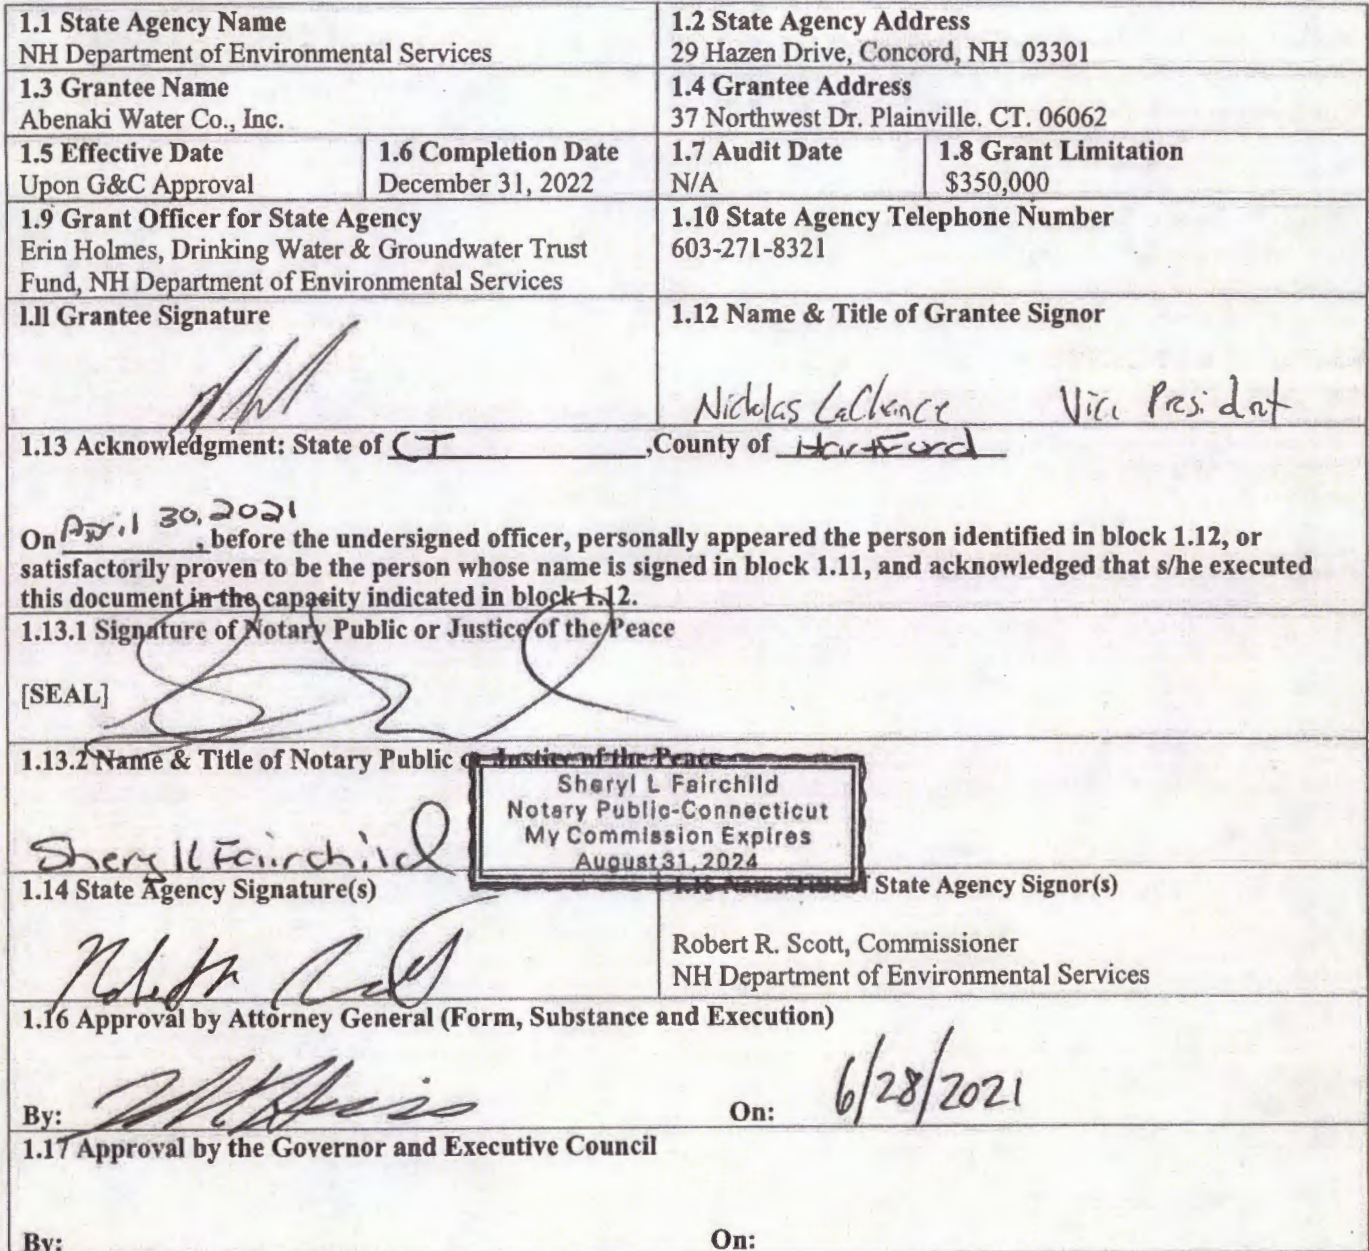 1.1 State Agency Name
NH Department of Environmental Services
1.2 State Agency Address
29 Hazen Drive, Concord, NH 03301
1.3 Grantee Name
Abenaki Water Co., Inc.
1.4 Grantee Address
37 Northwest Dr. Plainville. CT. 06062
1.5 Effective Date
Upon G&C Approval
1.6 Completion Date
December 31, 2022
1.7 Audit Date
N/A
1.8 Grant Limitation
$350,000
1.9 Grant Officer for State Agency
Erin Holmes, Drinking Water & Groundwater Trust
Fund, NH Department of Environmental Services
1.10 State Agency Telephone Number
603-271-8321
1.11 Grantee Signature
1.12 Name & Title of Grantee Signor
Nickolas LaChance Vice President
1.13 Acknowledgment: State of CT ,County of Hartford
On April 30, 2021, before the undersigned officer, personally appeared the person identified in block 1.12, or
satisfactorily proven to be the person whose name is signed in block 1.11, and acknowledged that s/he executed
this document in the capacity indicated in block 1.12.
1.13.1 Signature of Notary Public or Justice of the Peace
[SEAL]
1.13.2 Name & Title of Notary Public or Justice of the Peace
Sheryl L Fairchild
Notary Public-Connecticut
My Commission Expires
August 31, 2024
Sheryl L Fairchild
1.14 State Agency Signature(s)
1.15 Name/Title of State Agency Signor(s)
Robert R. Scott, Commissioner
NH Department of Environmental Services
1.16 Approval by Attorney General (Form, Substance and Execution)
By:
On: 6/28/2021
1.17 Approval by the Governor and Executive Council
By:
On: